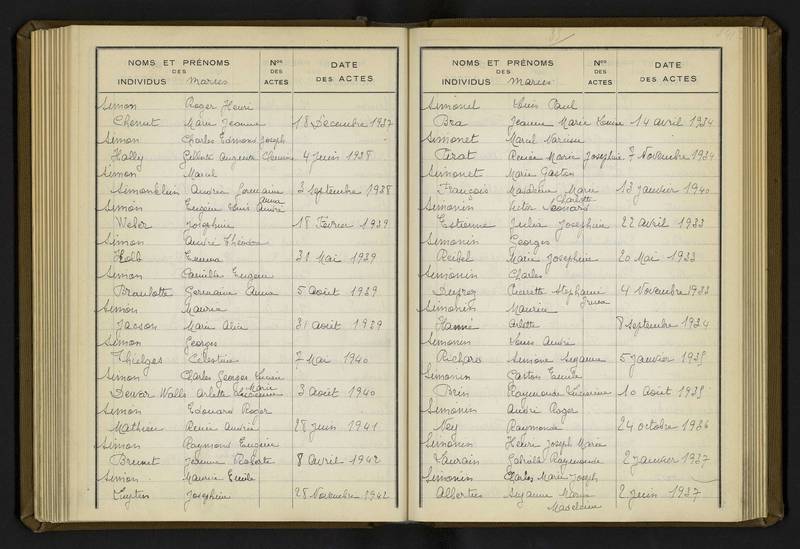 NOMS ET PRÉNOMS
DES
INDIVIDUS Mariés
Nos
DES
ACTES
DATE
DES ACTES
Simon Roger Henri
Marie Jeanne 18 Décembre 1937
Simon Charles Edmond Joseph
Hally Gilberte Augusta 4 Juin 1938
Simon Marcel
Simonklein Andrée Germaine 3 Septembre 1938
Simon Eugène Louis André
Anna
Weber Joséphine 18 Février 1939
Simon André Théodore
Holb Emma 31 Mai 1939
Simon Camille Eugène
Braulotte Germaine Anna 5 Août 1939
Simon Maurice
Jacson Marie Alice 31 Août 1939
Simon Georges
Thielges Célestine 7 Mai 1940
Simon Charles Georges Lucien
Marie
Walls Arlette Lucienne 3 Août 1940
Simon Edouard Roger
Mathieu Renée Andrée 28 Juin 1941
Simon Raymond Eugène
Brunet Jeanne Roberte 8 Avril 1942
Simon Maurice Emile
Joséphine 28 Novembre 1942
NOMS ET PRÉNOMS
DES
INDIVIDUS Mariés
Nos
DES
ACTES
DATE
DES ACTES
Simonet Louis Paul
Bra Jeanne Marie Louise 14 Avril 1934
Simonet Marcel Narcisse
Perat Renée Marie Joséphine 7 Novembre 1934
Simonet Marie Gaston
François Madeleine Marie 13 Janvier 1940
Simonin Victor Léonard
Charlotte
Estienne Julia Joséphine 22 Avril 1933
Simonin Georges
Reibel Marie Joséphine 20 Mai 1933
Simonin Charles
Pierrette Stéphanie 4 Novembre 1933
Simonin Maurice
Hanné Arlette 8 Septembre 1934
Simonin Louis André
Richard Simone Suzanne 5 Janvier 1935
Simonin Gaston Emile
Brin Raymonde Lucienne 10 Août 1935
Simonin André Roger
Ney Raymonde 24 Octobre 1936
Simonin Henri Joseph Marie
Vaurain Gabrielle Raymonde 2 Janvier 1937
Simonin Charles Marie Joseph
Albertus Suzanne Marie 2 Juin 1937
Madeleine